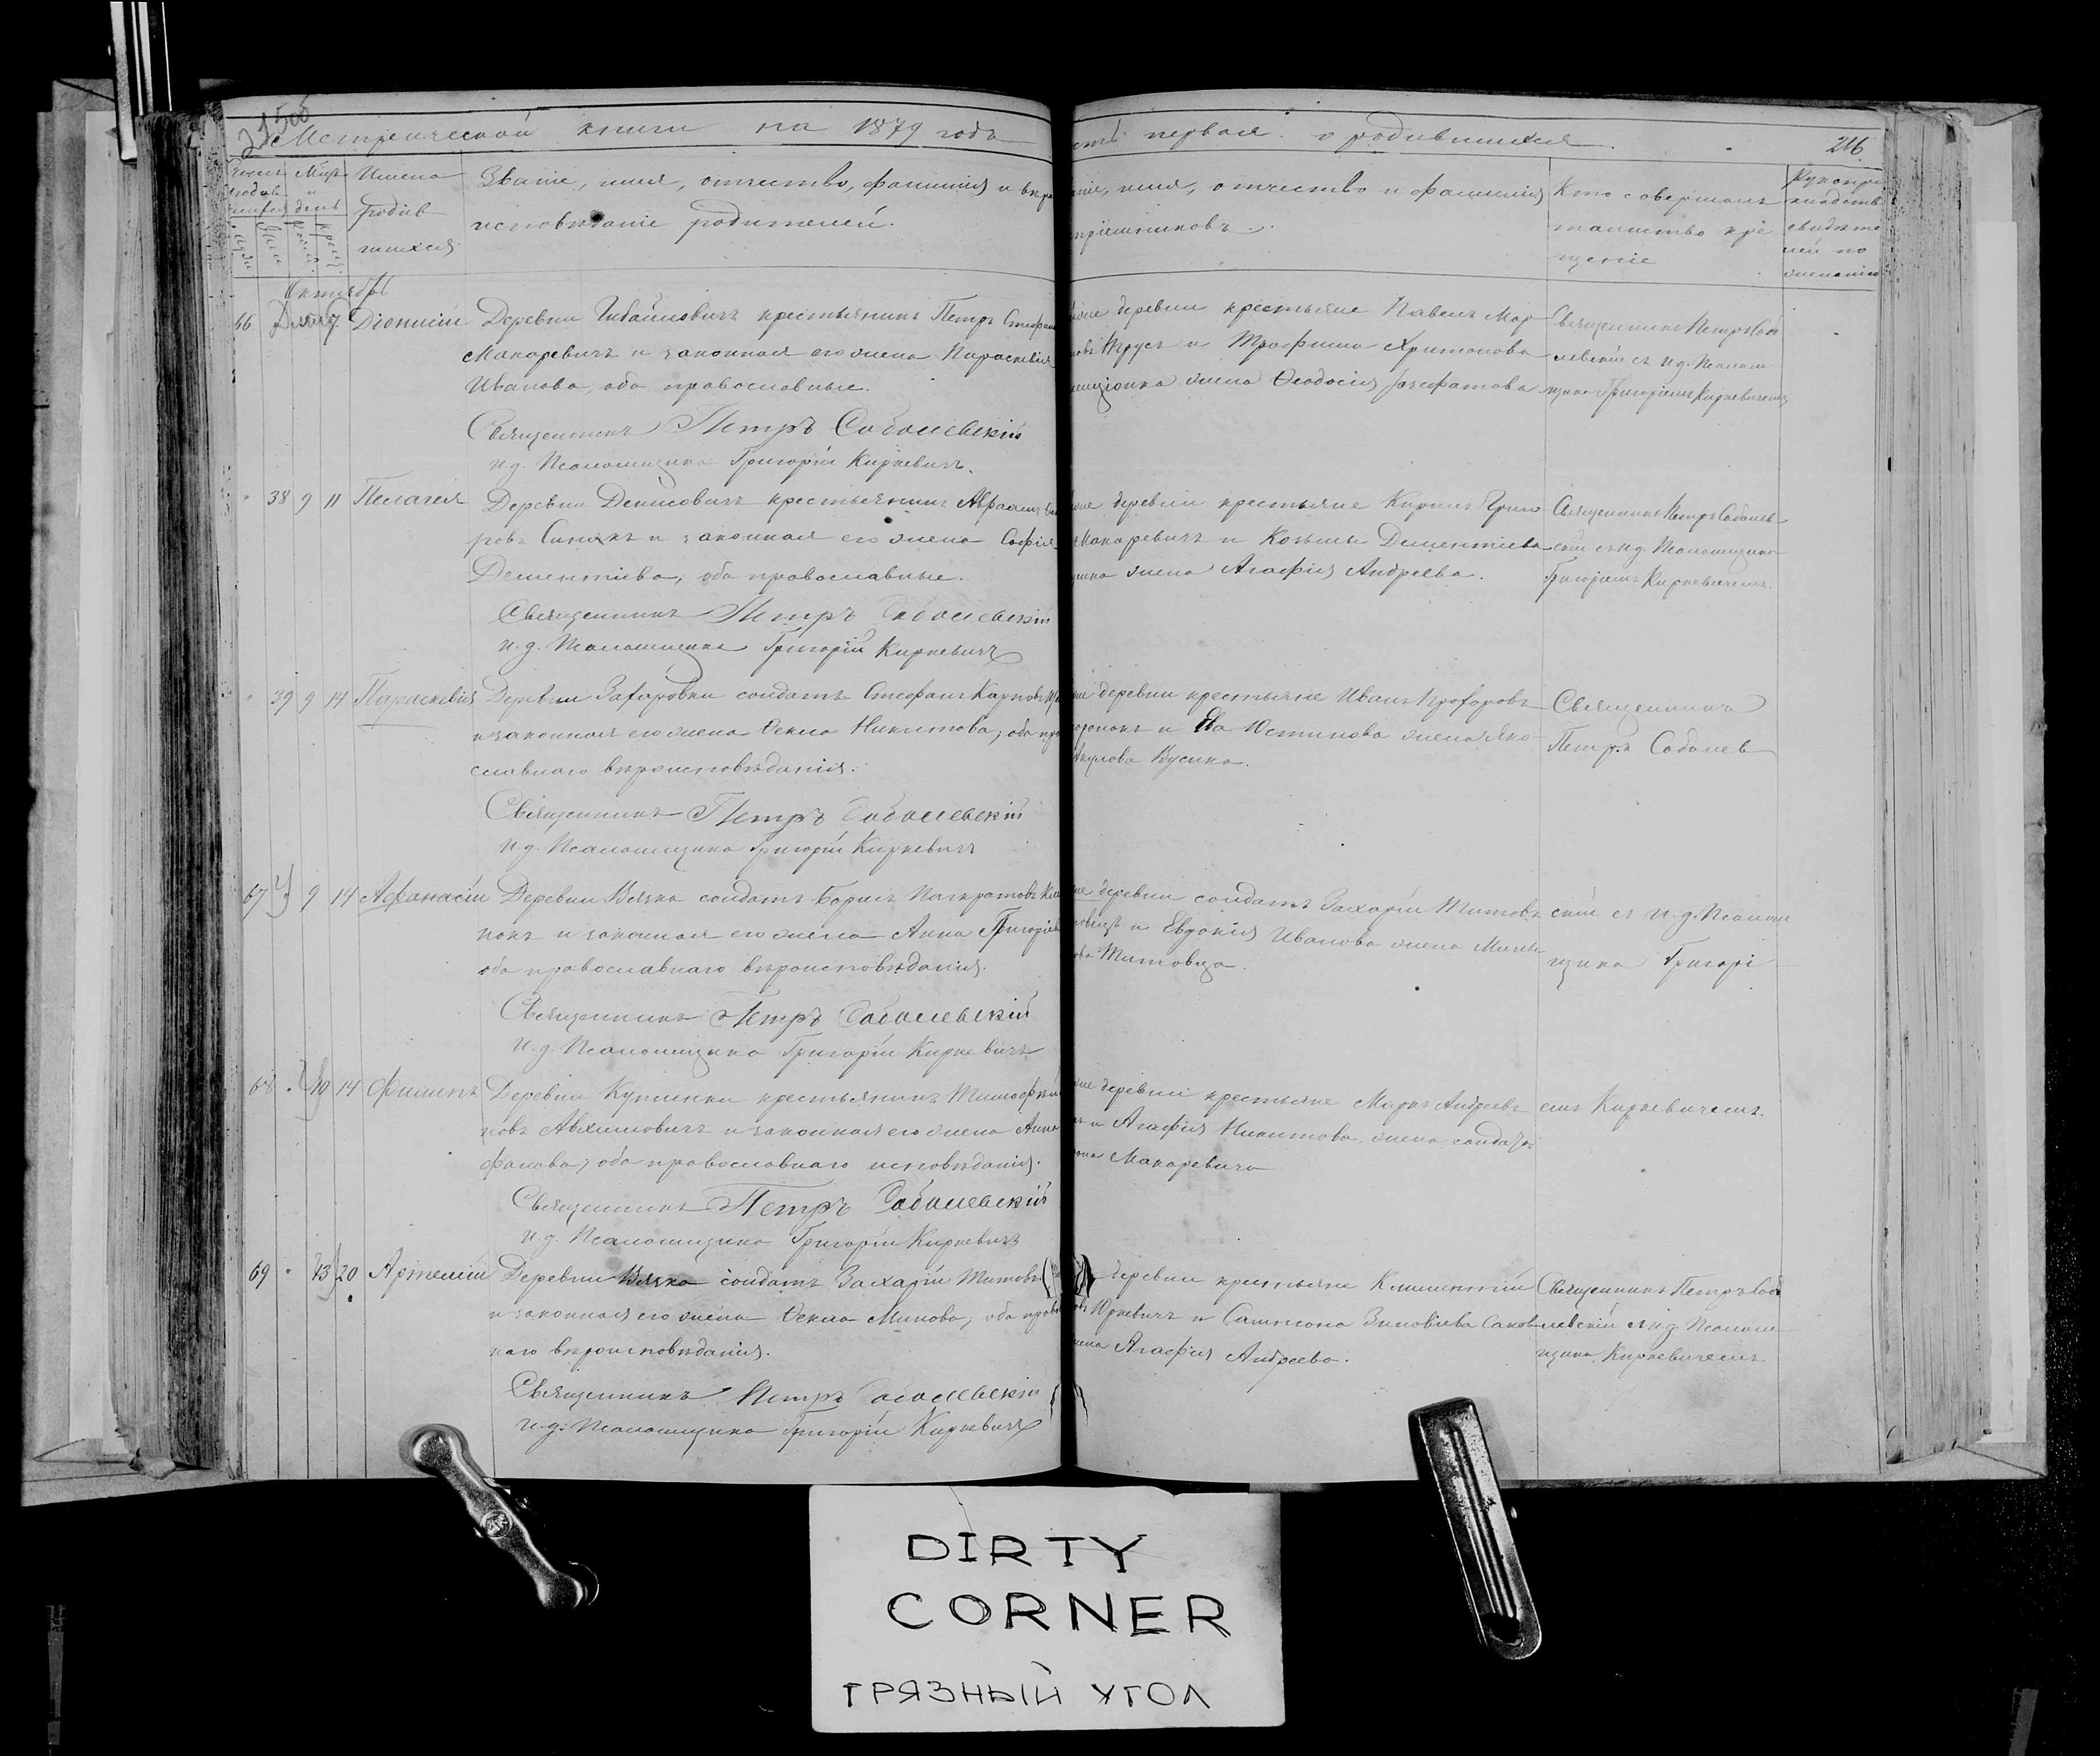 215об
Метрической книги на 1879 годъ
Имена
родив
шихся.
Званіе, имя, отчество, фамилія и вѣро
исповѣданіе родителей.
Октябрь
66 7 Діонисій Деревни крестьянинъ Петръ Стефан
Макаревичъ и законная его жена Параскевія
Иванова, оба православные.
Священникъ Петръ Соболевскій
и.д. Псаломщика Григорій Киркевичъ.
38 9 11 Пелагея Деревни Денисовичъ крестьянинъ Авраамъ
ровъ и законная его жена Софія
Дементіева, оба православные.
Священникъ Петръ Соболевскій
и.д. Псаломщика Григорій Киркевичъ
39 9 14 Параскевія Деревни Захаровки солдатъ Стефанъ Карповъ
и законная его жена Ѳекла Никитова, оба пра
славнаго вѣроисповѣданія.
Священникъ Петръ Соболевскій
и.д. Псаломщика Григорій Киркевичъ
67 9 14 Афанасій Деревни Вязка солдатъ Борисъ Панкратовъ
нокъ и законная его жена Анна Григоріев
оба православнаго вѣроисповѣданія.
Священникъ Петръ Соболевскій
и.д. Псаломщика Григорій Киркевичъ
68 10 14 Филипъ Деревни Купленки крестьянинъ Тимофей
новъ Авхимовичъ и законная его жена Анна
фанова, оба православнаго исповѣданія.
Священникъ Петръ Соболевскій
и.д. Псаломщика Григорій Киркевичъ
69 13 20 Артемій Деревни Вязка солдатъ Захарій Титовъ
и законная его жена Ѳекла Минова, оба право
наго вѣроисповѣданія.
Священникъ Петръ Соболевскій
и.д. Псаломщика Григорій Киркевичъ
сть первая о родившихся. 216
ніе, имя, отчество и фамилія
пріемниковъ.
Кто совершалъ
таинство кре
щеніе
Рукопри
кладств
свидѣте
лей по
желанію
деревни крестьяне Павелъ Мар
новъ Трусъ и Трофима Харитонова
жена Ѳеодосія Іосафатова
Священникъ Петръ Собо
левскій съ и.д. Псалом
щика Григоріемъ Киркевичемъ
деревни крестьяне Кирилъ Григо
Макаревичъ и Козьмы Дементіева
жена Агафія Андреева.
Священникъ Петръ Соболев
скій съ и.д. Псаломщика
Григоріемъ Киркевичемъ.
деревни крестьяне Иванъ Прохоровъ
и Ева Юстинова жена Яко
Вусика.
Священникъ
Петръ Соболев
деревни солдатъ Захарій Титовъ
и Евдокія Иванова жена
Титовца.
скій съ и.д. Псалом
щика Григорі
деревни крестьяне Маркъ Андреевъ
и Агафія Никитова, жена солдата
Макаревича
емъ Киркевичемъ.
деревни крестьяне Климентій
Юркевичъ и Самсона Зиновіева
жена Агафія Андреева.
Священникъ Петръ Собо
левскій и.д. Псалом
щика Киркевичемъ
DIRTY
CORNER
ГРЯЗНЫЙ УГОЛ